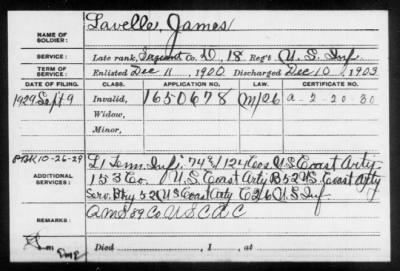 NAME OF SOLDIER: Lavelle, James
SERVICE: Late rank, Sergeant Co. D, 18 Reg't U.S. Inf
TERM OF SERVICE: Enlisted Dec 11, 1900 Discharged Dec 10, 1903
DATE OF FILING. CLASS. APPLICATION NO. LAW. CERTIFICATE NO.
1929 Sept 9 Invalid, 1650678 a-2-20-30
Widow,
Minor,
10-26-29
ADDITIONAL SERVICES:
Inf; 74 & 124 Cos. U.S. Coast Arty
153 Co. U.S. Coast Arty B 52 U.S. Coast Arty
Serv. Btry 52 U.S Coast Arty C 26 U.S Inf
REMARKS: 39 Co U.S.C.A.C
Died , 1 , at